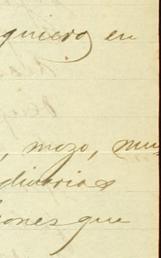 quiero en
, mozo, mu
diveria
iones que